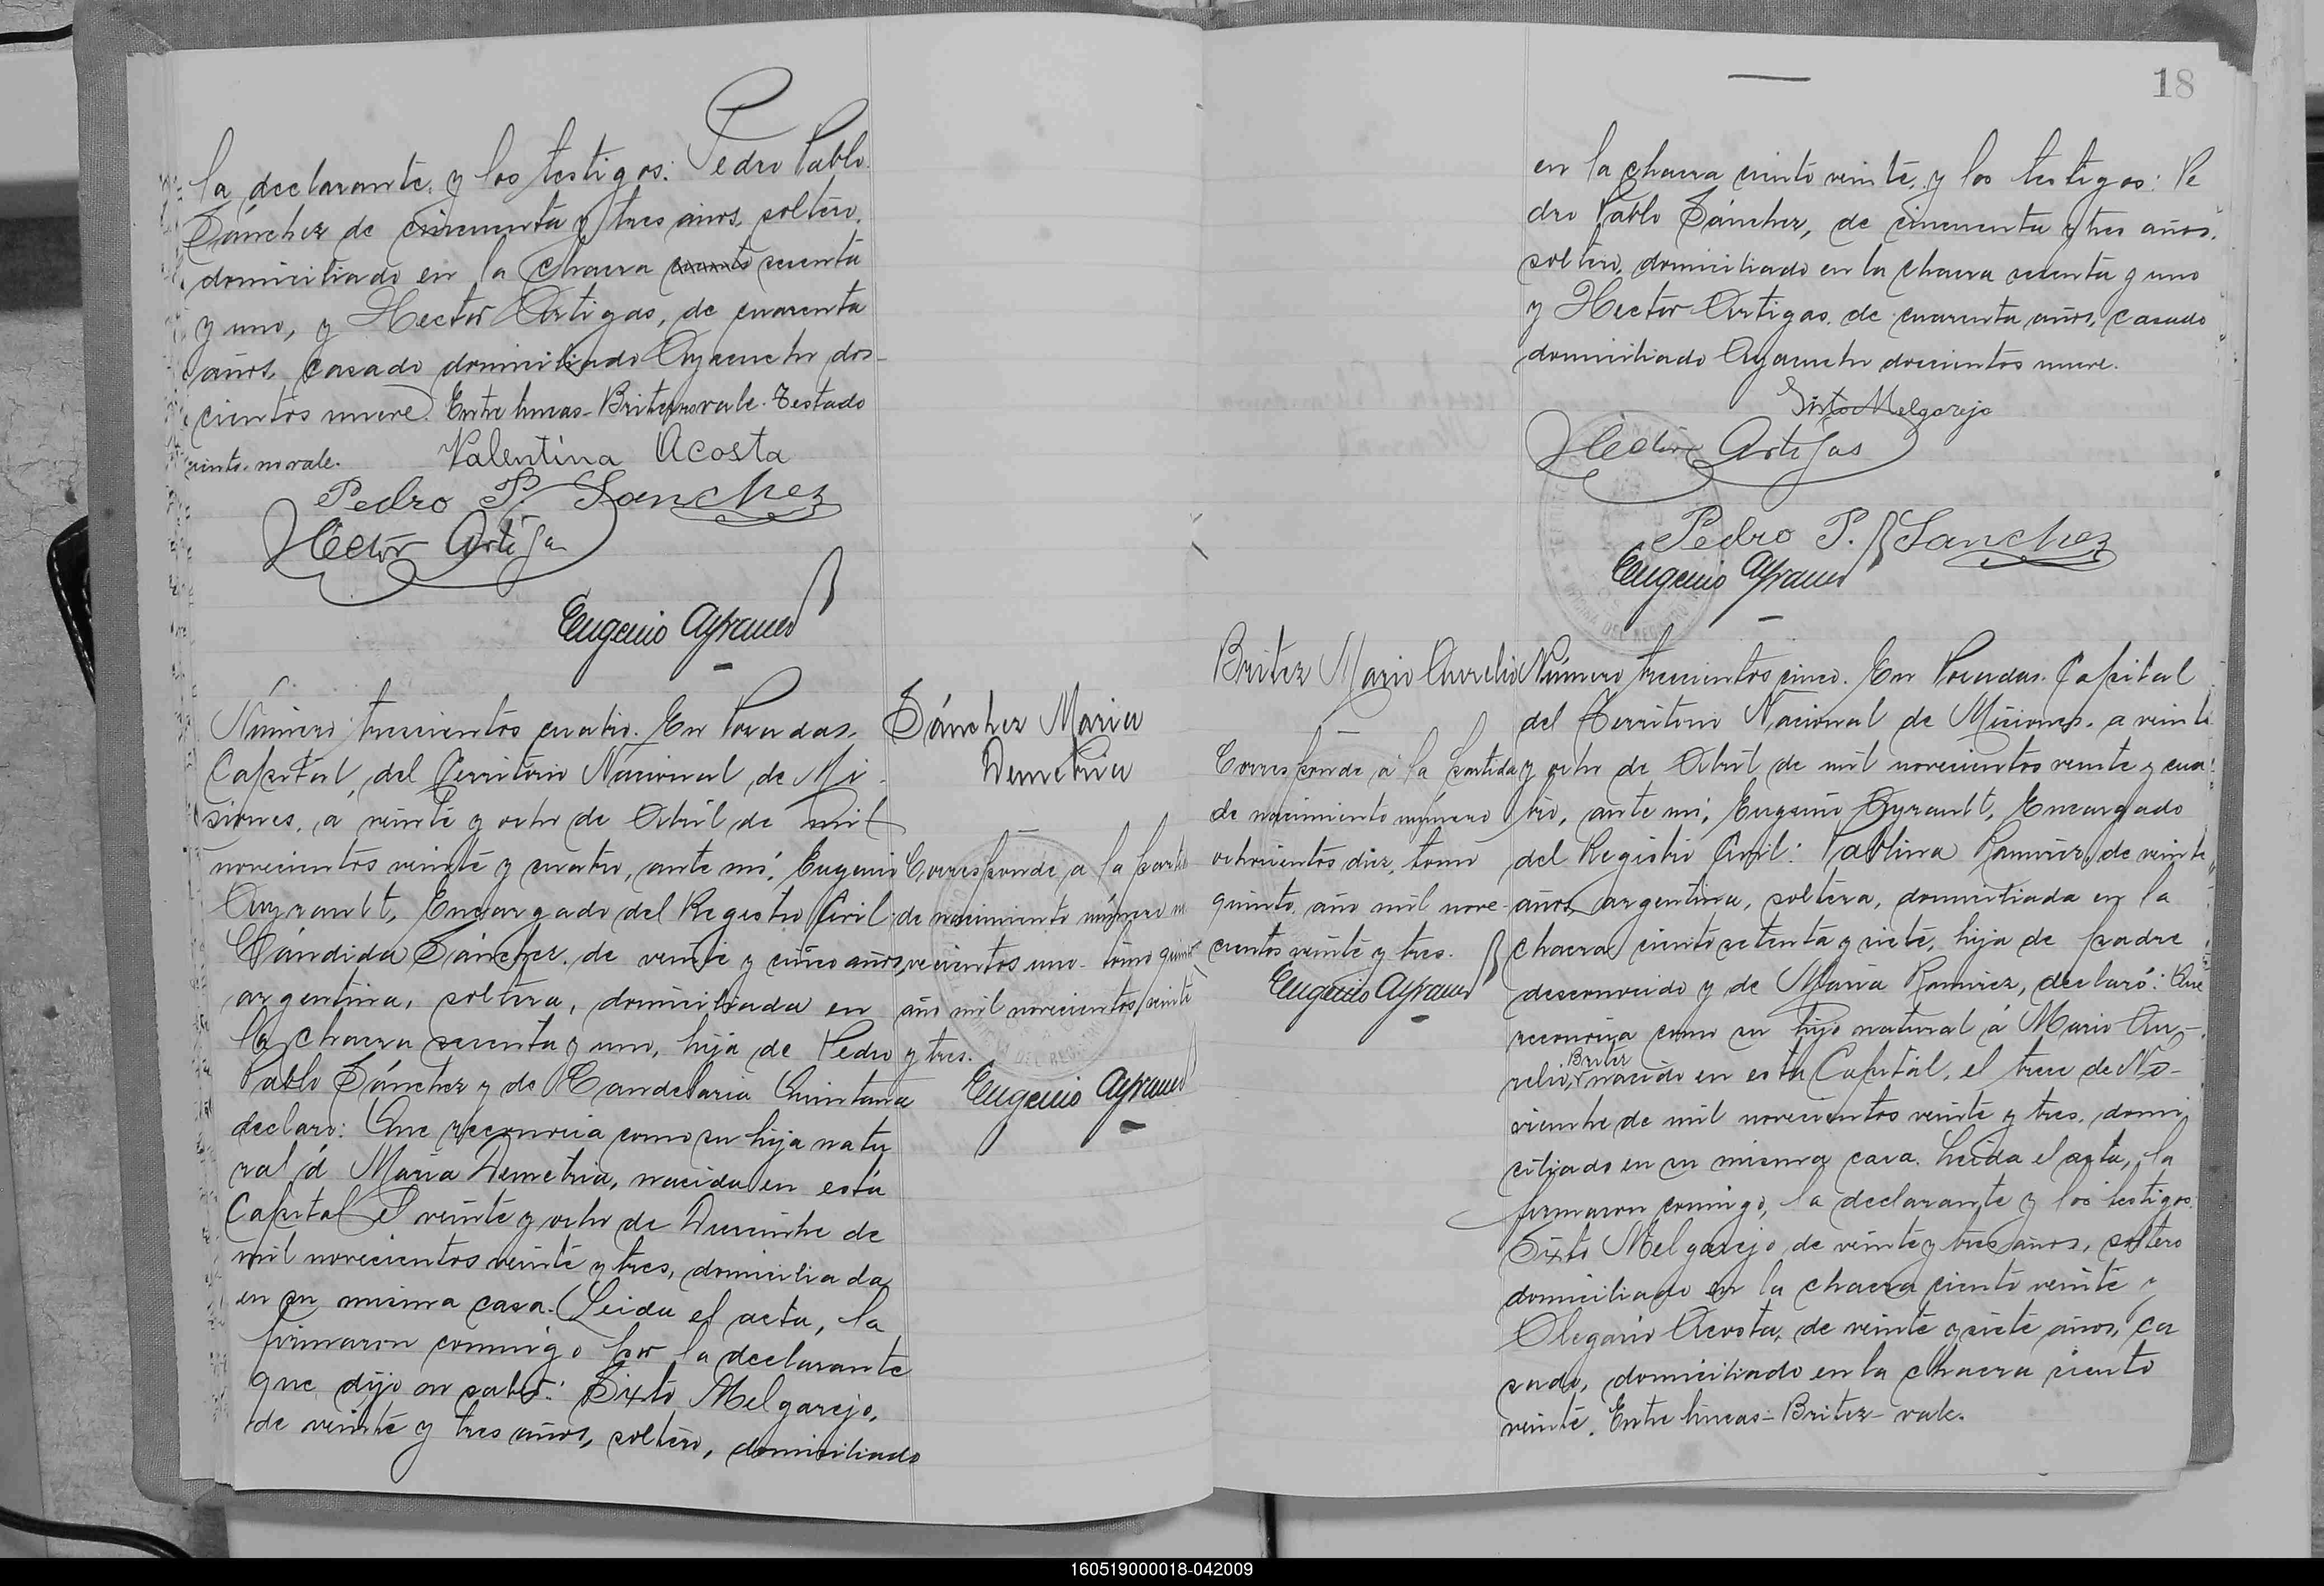 la declarante y los testigos: Pedro Pablo
Sánchez de cincuenta y tres años, soltero,
domiciliado en la chacra ciento sesenta
y uno, y Hector Artigas, de cuarenta
años, casado domiciliado Ayacucho dos-
cientos nueve. Entre lineas-Britez-vale. Testado
ciento-no vale.
Valentina Acosta
Pedro P. Sanchez
Héctor Artigas
Eugenio Ayrault
Número trescientos cuatro. En Posadas,
Capital, del Territorio Nacional de Mi-
siones, a veinte y ocho de Abril de mil
novecientos veinte y cuatro, ante mí, Eugenio
Ayrault, Encargado del Registro Civil:
Cándida Sánchez, de veinte y cinco años,
argentina, soltera, domiciliada en
la chacra sesenta y uno, hija de Pedro
Pablo Sánchez y de Candelaria Quintana
declaro: Que reconocia como su hija natu
ral á María Demetria, nacida en esta
Capital el veinte y ocho de Diciembre de
mil novecientos veinte y tres, domiciliada
en su misma casa. Leida el acta, la
firmaron conmigo por la declarante
que dijo no saber: Sixto Melgarejo,
de veinte y tres años, soltero, domiciliado
Sánchez Maria
Demetria
Corresponde a la parti
de nacimiento número no
vecientos uno- tomo quinto
año mil novecientos veinte
y tres.
Eugenio Ayrault
18
en la chacra ciento veinte, y los testigos: Pe
dro Pablo Sánchez, de cincuenta y tres años,
soltero, domiciliado en la chacra sesenta y uno
y Hector Artigas, de cuarenta años, casado
domiciliado Ayacucho doscientos nueve.
Sixto Melgarejo
Héctor Artigas
Pedro P. Sanchez
Eugenio Ayrault
Britez Mario Aurelio
Corresponde á la partida
de nacimiento número
ochocientos diez, tomo
quinto, año mil nove-
cientos veinte y tres.
Eugenio Ayrault
Número trescientos cinco. En Posadas. Capital
del Territorio Nacional de Misiones, a veinte
y ocho de Abril de mil novecientos veinte y cua-
tro, ante mí, Eugenio Ayrault, Encargado
del Registro Civil: Pablina Ramirez, de veinte
años, argentina, soltera, domiciliada en la
chacra ciento setenta y siete, hija de padre
desconocido y de María Ramirez, declaró: Que
reconocia como su hijo natural á Mario Au-
Britez
relio, nacido en esta Capital, el trece de No-
viembre de mil novecientos veinte y tres, domi
ciliado en su misma casa. Leida el acta, la
firmaron conmigo, la declarante y los testigos:
Sixto Melgarejo, de veinte y tres años, soltero
domiciliado en la chacra ciento veinte y
Olegario Acosta, de veinte y siete años, ca
sado, domiciliado en la chacra ciento
veinte. Entre lineas-Britez-vale.
160519000018-042009